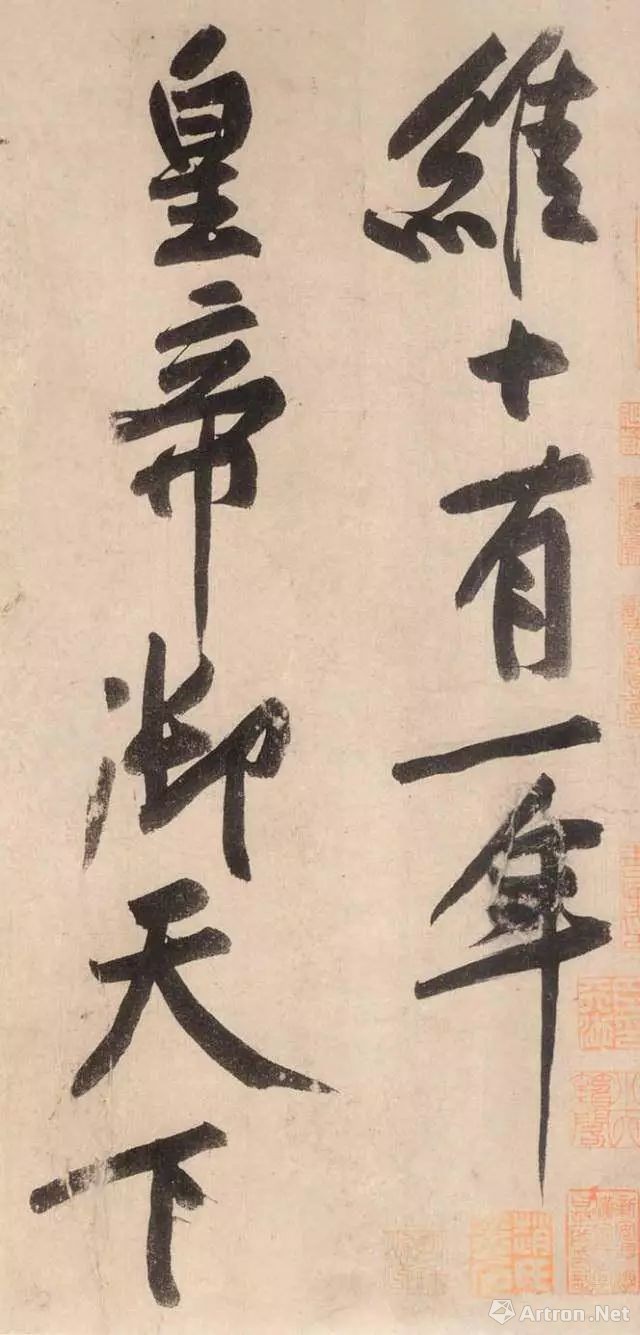 維十有一年
皇帝御天下
Artron.Net